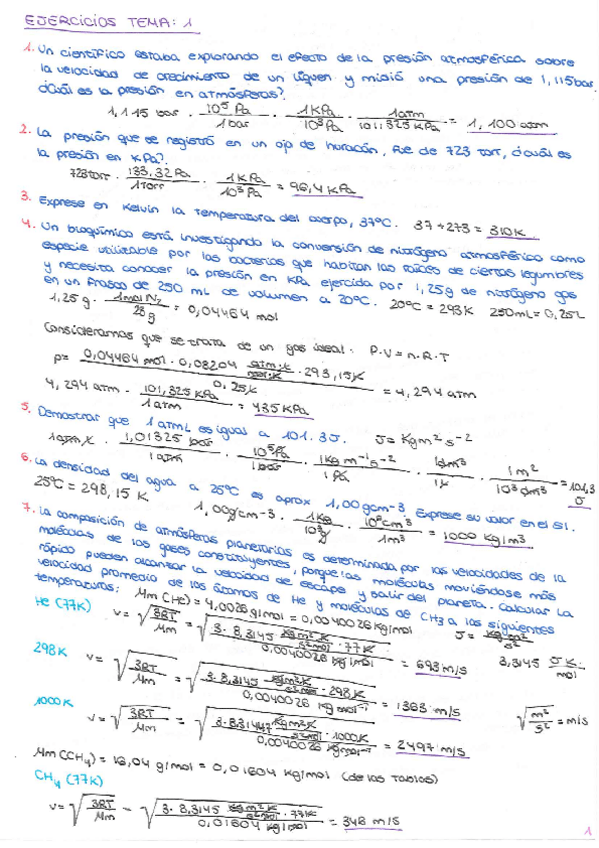 EJERCICIOS TEMA: 1
1. Un científico estaba explorando el efecto de la presión atmosférica sobre
la velocidad de crecimiento de un líquen y midió una presión de 1,115bar.
¿Cuál es la presión en atmósferas?
1,115 bar · 10⁵ Pa / 1 bar · 1KPa / 10³ Pa · 1atm / 101,325 KPa = 1,100 atm
2. La presión que se registró en un ojo de huracán, fue de 723 torr, ¿cuál es
la presión en KPa?
723 torr · 133,32 Pa / 1 Torr · 1KPa / 10³ Pa = 96,4 KPa
3. Exprese en Kelvin la temperatura del cuerpo, 37°C. 37+273 = 310K
4. Un bioquímico está investigando la conversión de nitrógeno atmosférico como
especie utilizable por las bacterias que habitan las raíces de ciertas legumbres
y necesita conocer la presión en KPa ejercida por 1,25g de nitrógeno gas
en un frasco de 250 mL de volumen a 20°C. 20°C = 293K 250mL = 0,25L
1,25 g · 1mol N₂ / 28 g = 0,04464 mol
Consideramos que se trata de un gas ideal: P·V = n·R·T
p = 0,04464 mol · 0,08204 atm·L / mol·K · 293,15K / 0,25L = 4,294 atm
4,294 atm · 101,325 KPa / 1 atm = 435 KPa
5. Demostrar que 1 atmL es igual a 101.3J. J = Kgm²s⁻²
1atm L · 1,01325 bar / 1 atm · 10⁵Pa / 1 bar · 1Kg m⁻¹s⁻² / 1 Pa · 1dm³ / 1L · 1m² / 10³ dm³ = 101,3 J
6. La densidad del agua a 25°C es aprox 1,00 gcm⁻³. Exprese su valor en el SI.
25°C = 298,15 K 1,00g/cm⁻³ · 1Kg / 10³g · 10⁶cm³ / 1m³ = 1000 Kg/m³
7. La composición de atmósferas planetarias es determinada por las velocidades de la
moléculas de los gases constituyentes, porque las moléculas moviéndose más
rápido pueden alcanzar la velocidad de escape y salir del planeta. Calcular la
velocidad promedio de los átomos de He y moléculas de CH₃ a las siguientes
temperaturas: Mm (He) = 4,0026 g/mol = 0,0040026 Kg/mol J = Kg·m² / s²
He (77K) v = √3RT / Mm = √3 · 8,3145 Kg m² K / s² mol · 77K / 0,0040026 Kg/mol = 693 m/s 8,3145 J K / mol
298K v = √3RT / Mm = √3 · 8,3145 Kg m² K / s² mol · 298K / 0,0040026 Kg mol⁻¹ = 1363 m/s
1000K v = √3RT / Mm = √3 · 8,3144 Kg m² K / s² mol · 1000K / 0,0040026 Kg mol⁻¹ = 2497 m/s √m² / s² = m/s
Mm (CH₄) = 16,04 g/mol = 0,01604 Kg/mol (de las tablas)
CH₄ (77K)
v = √3RT / Mm = √3 · 8,3145 Kg m² K / s² mol · 77K / 0,01604 Kg/mol = 348 m/s
1